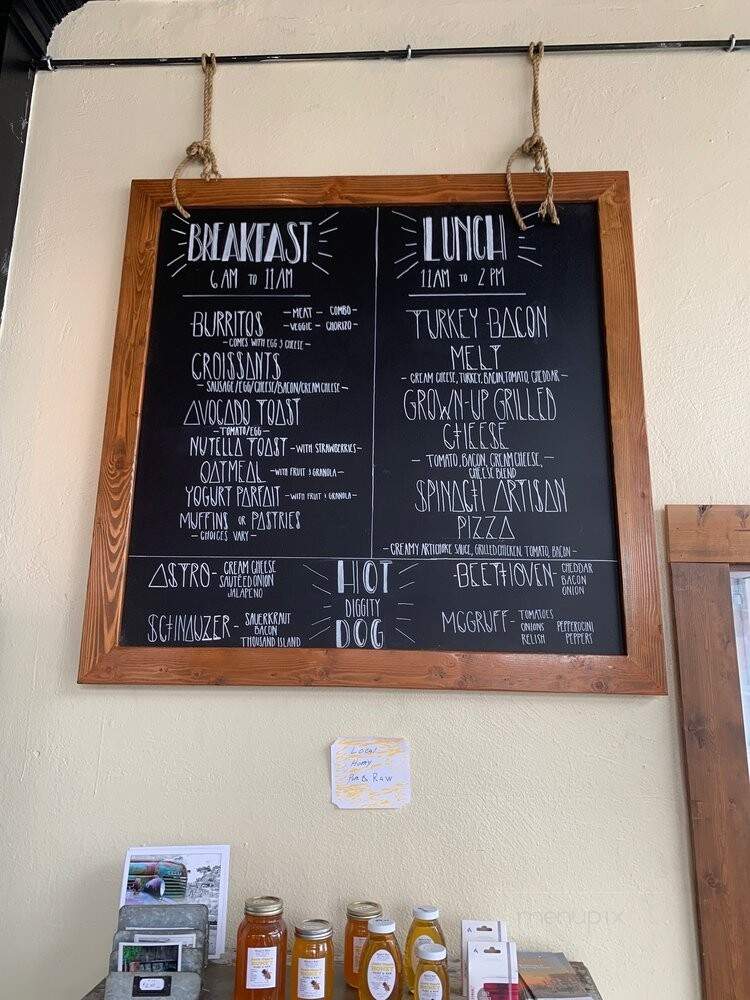 BREAKFAST
6 AM TO 11 AM
BURRITOS - MEAT - COMBO -
- VEGGIE - CHORIZO -
- COMES WITH EGG & CHEESE -
CROISSANTS
- SAUSAGE/EGG/CHEESE/BACON/CREAM CHEESE -
AVOCADO TOAST
- TOMATO/EGG -
NUTELLA TOAST - WITH STRAWBERRIES -
OATMEAL - WITH FRUIT & GRANOLA -
YOGURT PARFAIT - WITH FRUIT & GRANOLA -
MUFFINS OR PASTRIES
- CHOICES VARY -
LUNCH
11 AM TO 2 PM
TURKEY BACON
MELT
- CREAM CHEESE, TURKEY, BACON, TOMATO, CHEDDAR -
GROWN-UP GRILLED
CHEESE
- TOMATO, BACON, CREAM CHEESE, -
CHEESE BLEND
SPINACH ARTISAN
PIZZA
- CREAMY ARTICHOKE SAUCE, GRILLED CHICKEN, TOMATO, BACON -
HOT
DIGGITY
DOG
ASTRO - CREAM CHEESE
SAUTÉED ONION
JALAPENO
SCHNAUZER - SAUERKRAUT
BACON
THOUSAND ISLAND
BEETHOVEN - CHEDDAR
BACON
ONION
MCGRUFF - TOMATOES
ONIONS
RELISH
PEPPEROCINI
PEPPERS
LOCAL
HONEY
PURE & RAW
HONEY
HONEY
HONEY
menupix